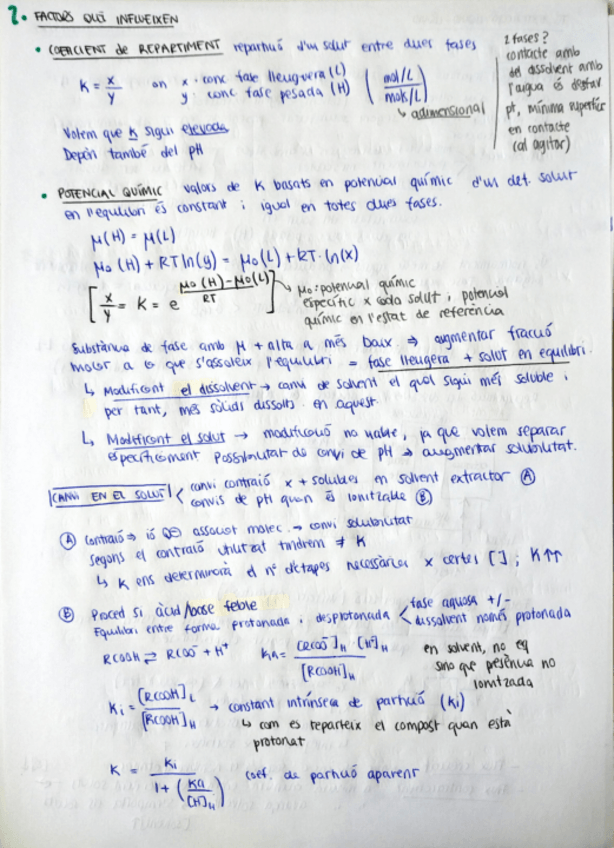 2. FACTORS QUE INFLUEIXEN
• COEFICIENT de REPARTIMENT repartició d'un solut entre dues fases
K = x/y on x: conc fase lleugera (L) (mol/L
y: conc fase pesada (H) mol/L)
↳ adimensional
Volem que K sigui elevada
Depèn també del pH
2 fases?
contacte amb
del dissolvent amb
l'aigua és
pt, mínima superfície
en contacte
(cal agitar)
• POTENCIAL QUÍMIC valors de K basats en potencial químic d'un det. solut
en l'equilibri és constant i igual en totes dues fases.
μ(H) = μ(L)
μ₀(H) + RT ln(y) = μ₀(L) + RT · ln(x)
[x/y = K = e^((μ₀(H) - μ₀(L))/RT)]
→ μ₀: potencial químic
específic x cada solut i potencial
químic en l'estat de referència
Substància de fase amb μ + alta a més baix ⇒ augmentar fracció
molar a que s'assoleix l'equilibri = fase lleugera + solut en equilibri.
↳ Modificant el dissolvent → canvi de solvent el qual sigui més soluble i
per tant, més sòlids dissolts en aquest.
↳ Modificant el solut → modificació no viable, ja que volem separar
específicament Possibilitat de canvi de pH → augmentar solubilitat.
CANVI EN EL SOLUT < canvi contraió x + solubles en solvent extractor (A)
canvis de pH quan és ionitzable (B)
(A) Contraió ⇒ ió associat molec. → canvi solubilitat
segons el contraió utilitzat tindrem ≠ K
↳ K ens determinarà el nº d'etapes necessàries x certes [ ]; K↑↑
(B) Proced si àcid/base feble
Equilibri entre forma protonada i desprotonada < fase aquosa +/-
dissolvent només protonada
RCOOH ⇌ RCOO⁻ + H⁺ Ka = [RCOO⁻]H · [H⁺]H / [RCOOH]H
en solvent, no eq
sino que presència no
ionitzada
Ki = [RCOOH]L / [RCOOH]H → constant intrínseca de partició (Ki)
↳ com es reparteix el compost quan està
protonat
K = Ki / 1 + (Ka / [H]H) coef. de partició aparent